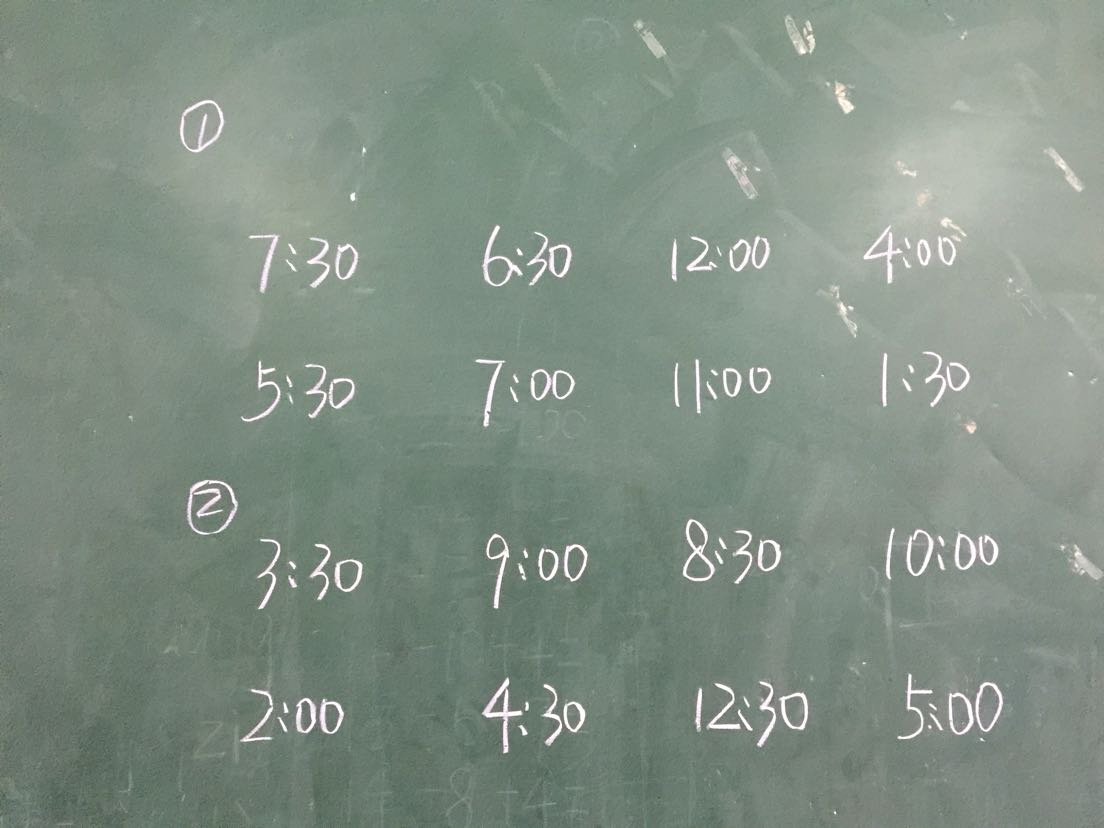 ①
7:30 6:30 12:00 4:00
5:30 7:00 11:00 1:30
②
3:30 9:00 8:30 10:00
2:00 4:30 12:30 5:00